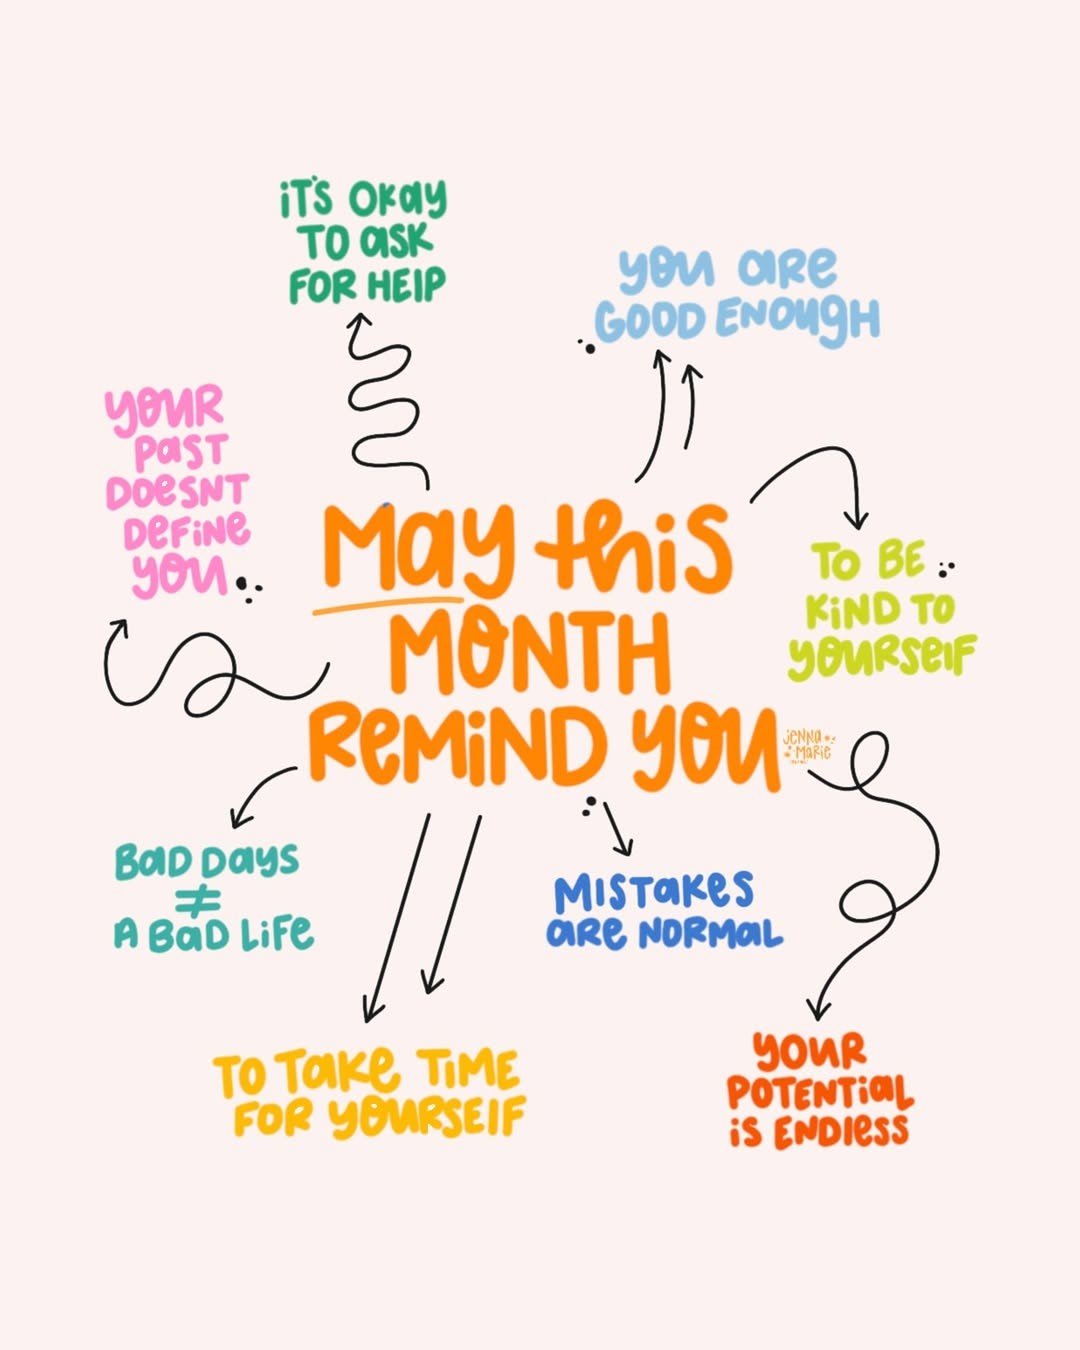 iT'S OKay
TO aSK
FOR HElP
you aRe
GOOD ENOugH
youR
PaST
DOeSNT
DeFiNe
you
May this
MONTH
ReMiND you
TO BE
KiND TO
youRSelF
jeNNa
MaRie
BaD Days
≠
A BaD LiFe
MISTaKeS
aRe NORMaL
TO TaKe TiME
FOR yOuRSElF
youR
POTENTiaL
iS ENDleSS